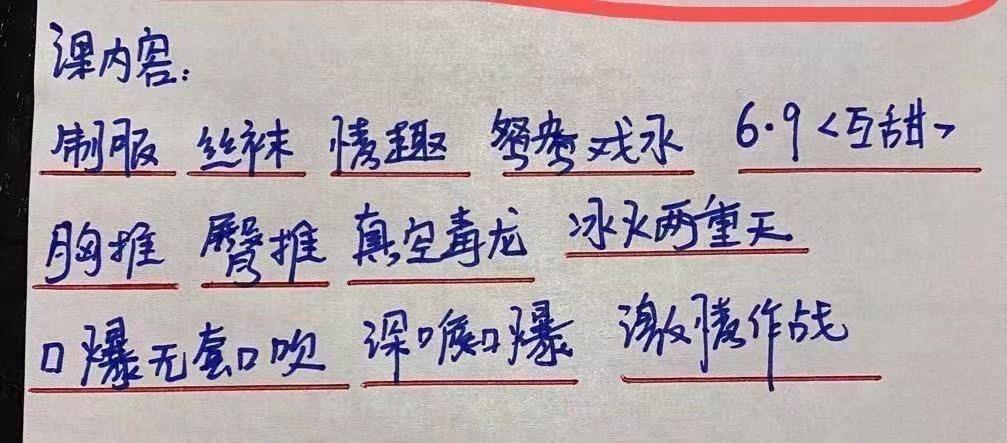 课内容:
制服 丝袜 情趣 鸳鸯戏水 6·9<互甜>
胸推 臀推 真空毒龙 冰火两重天
口爆无套口吹 深喉口爆 激情作战